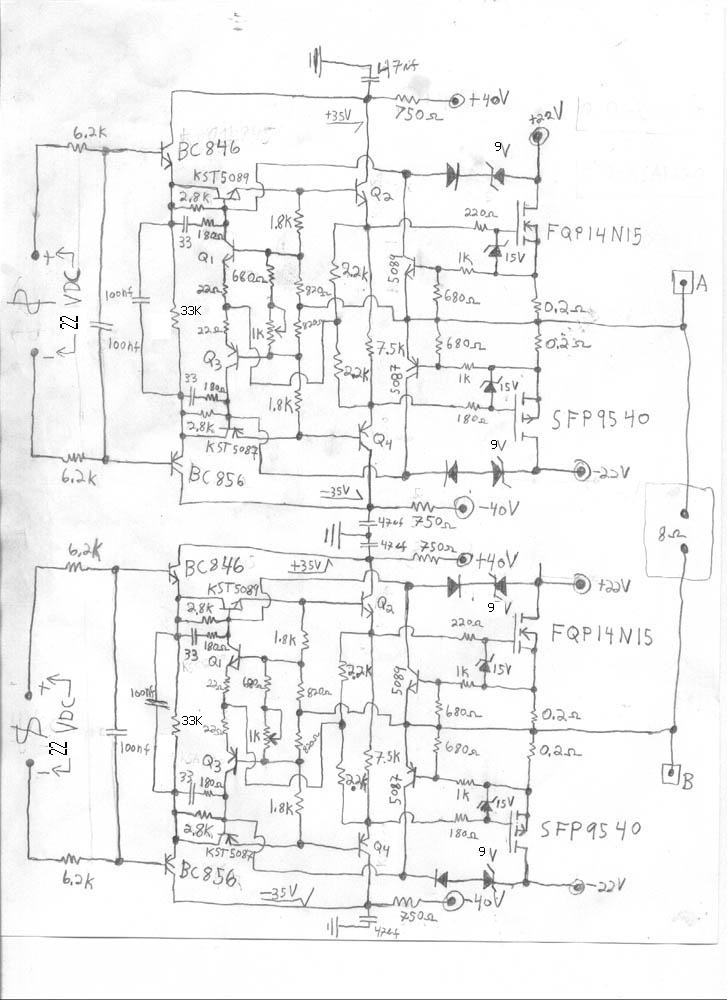 47nf
+40V
750Ω
+35V
+22V
6.2K
BC846
9V
KST5089
Q2
2.8K
220Ω
FQP14N15
33
180Ω
1.8K
15V
Q1
680Ω
22K
5089
1K
A
+
22 VDC
-
100nf
100nf
33K
22Ω
820Ω
680Ω
0.2Ω
22Ω
1K
820Ω
680Ω
0.2Ω
Q3
7.5K
22K
5087
1K
15V
33
180Ω
1.8K
180Ω
SFP9540
2.8K
KST5087
Q4
9V
6.2K
BC856
-22V
-35V
-40V
750Ω
8Ω
47nf
47nf
750Ω
6.2K
BC846
+35V
+40V
KST5089
Q2
9V
+22V
2.8K
33
180Ω
1.8K
220Ω
FQP14N15
Q1
22K
15V
5089
1K
+
22 VDC
-
100nf
100nf
22Ω
680Ω
820Ω
680Ω
0.2Ω
33K
22Ω
1K
820Ω
680Ω
0.2Ω
Q3
7.5K
22K
5087
1K
B
33
180Ω
1.8K
15V
180Ω
SFP9540
2.8K
KST5087
Q4
9V
6.2K
BC856
-35V
-40V
-22V
750Ω
47nf